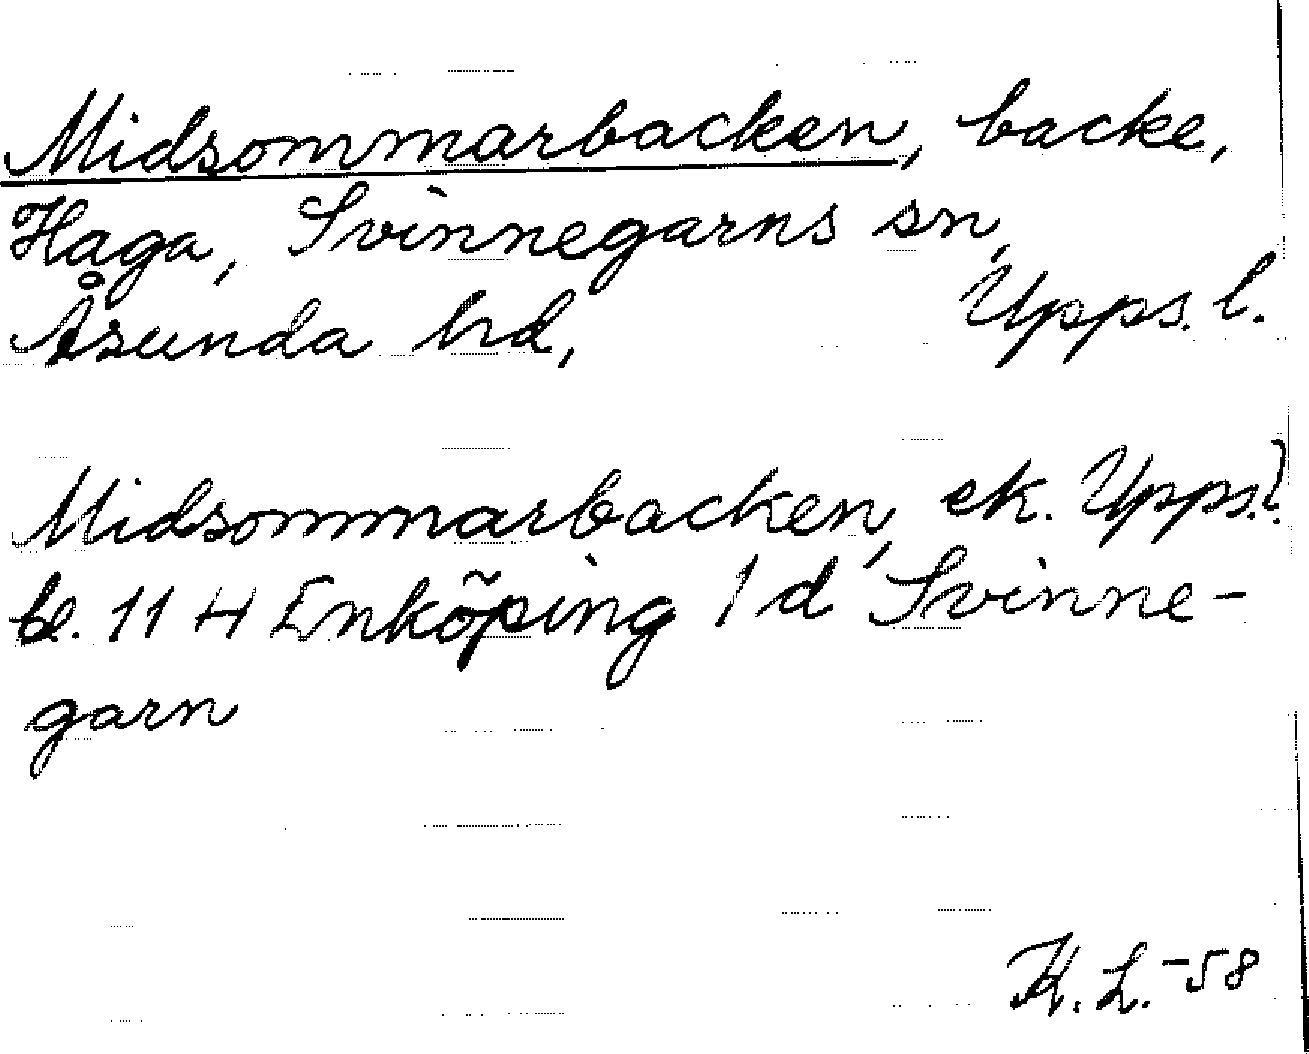 Midsommarbacken, backe,
Haga, Svinnegarns sn,
Åsunda hd, Upps. l.
Midsommarbacken, ek. Upps. l.
bl. 11 H Enköping 1 d Svinne-
garn
K. L. -58